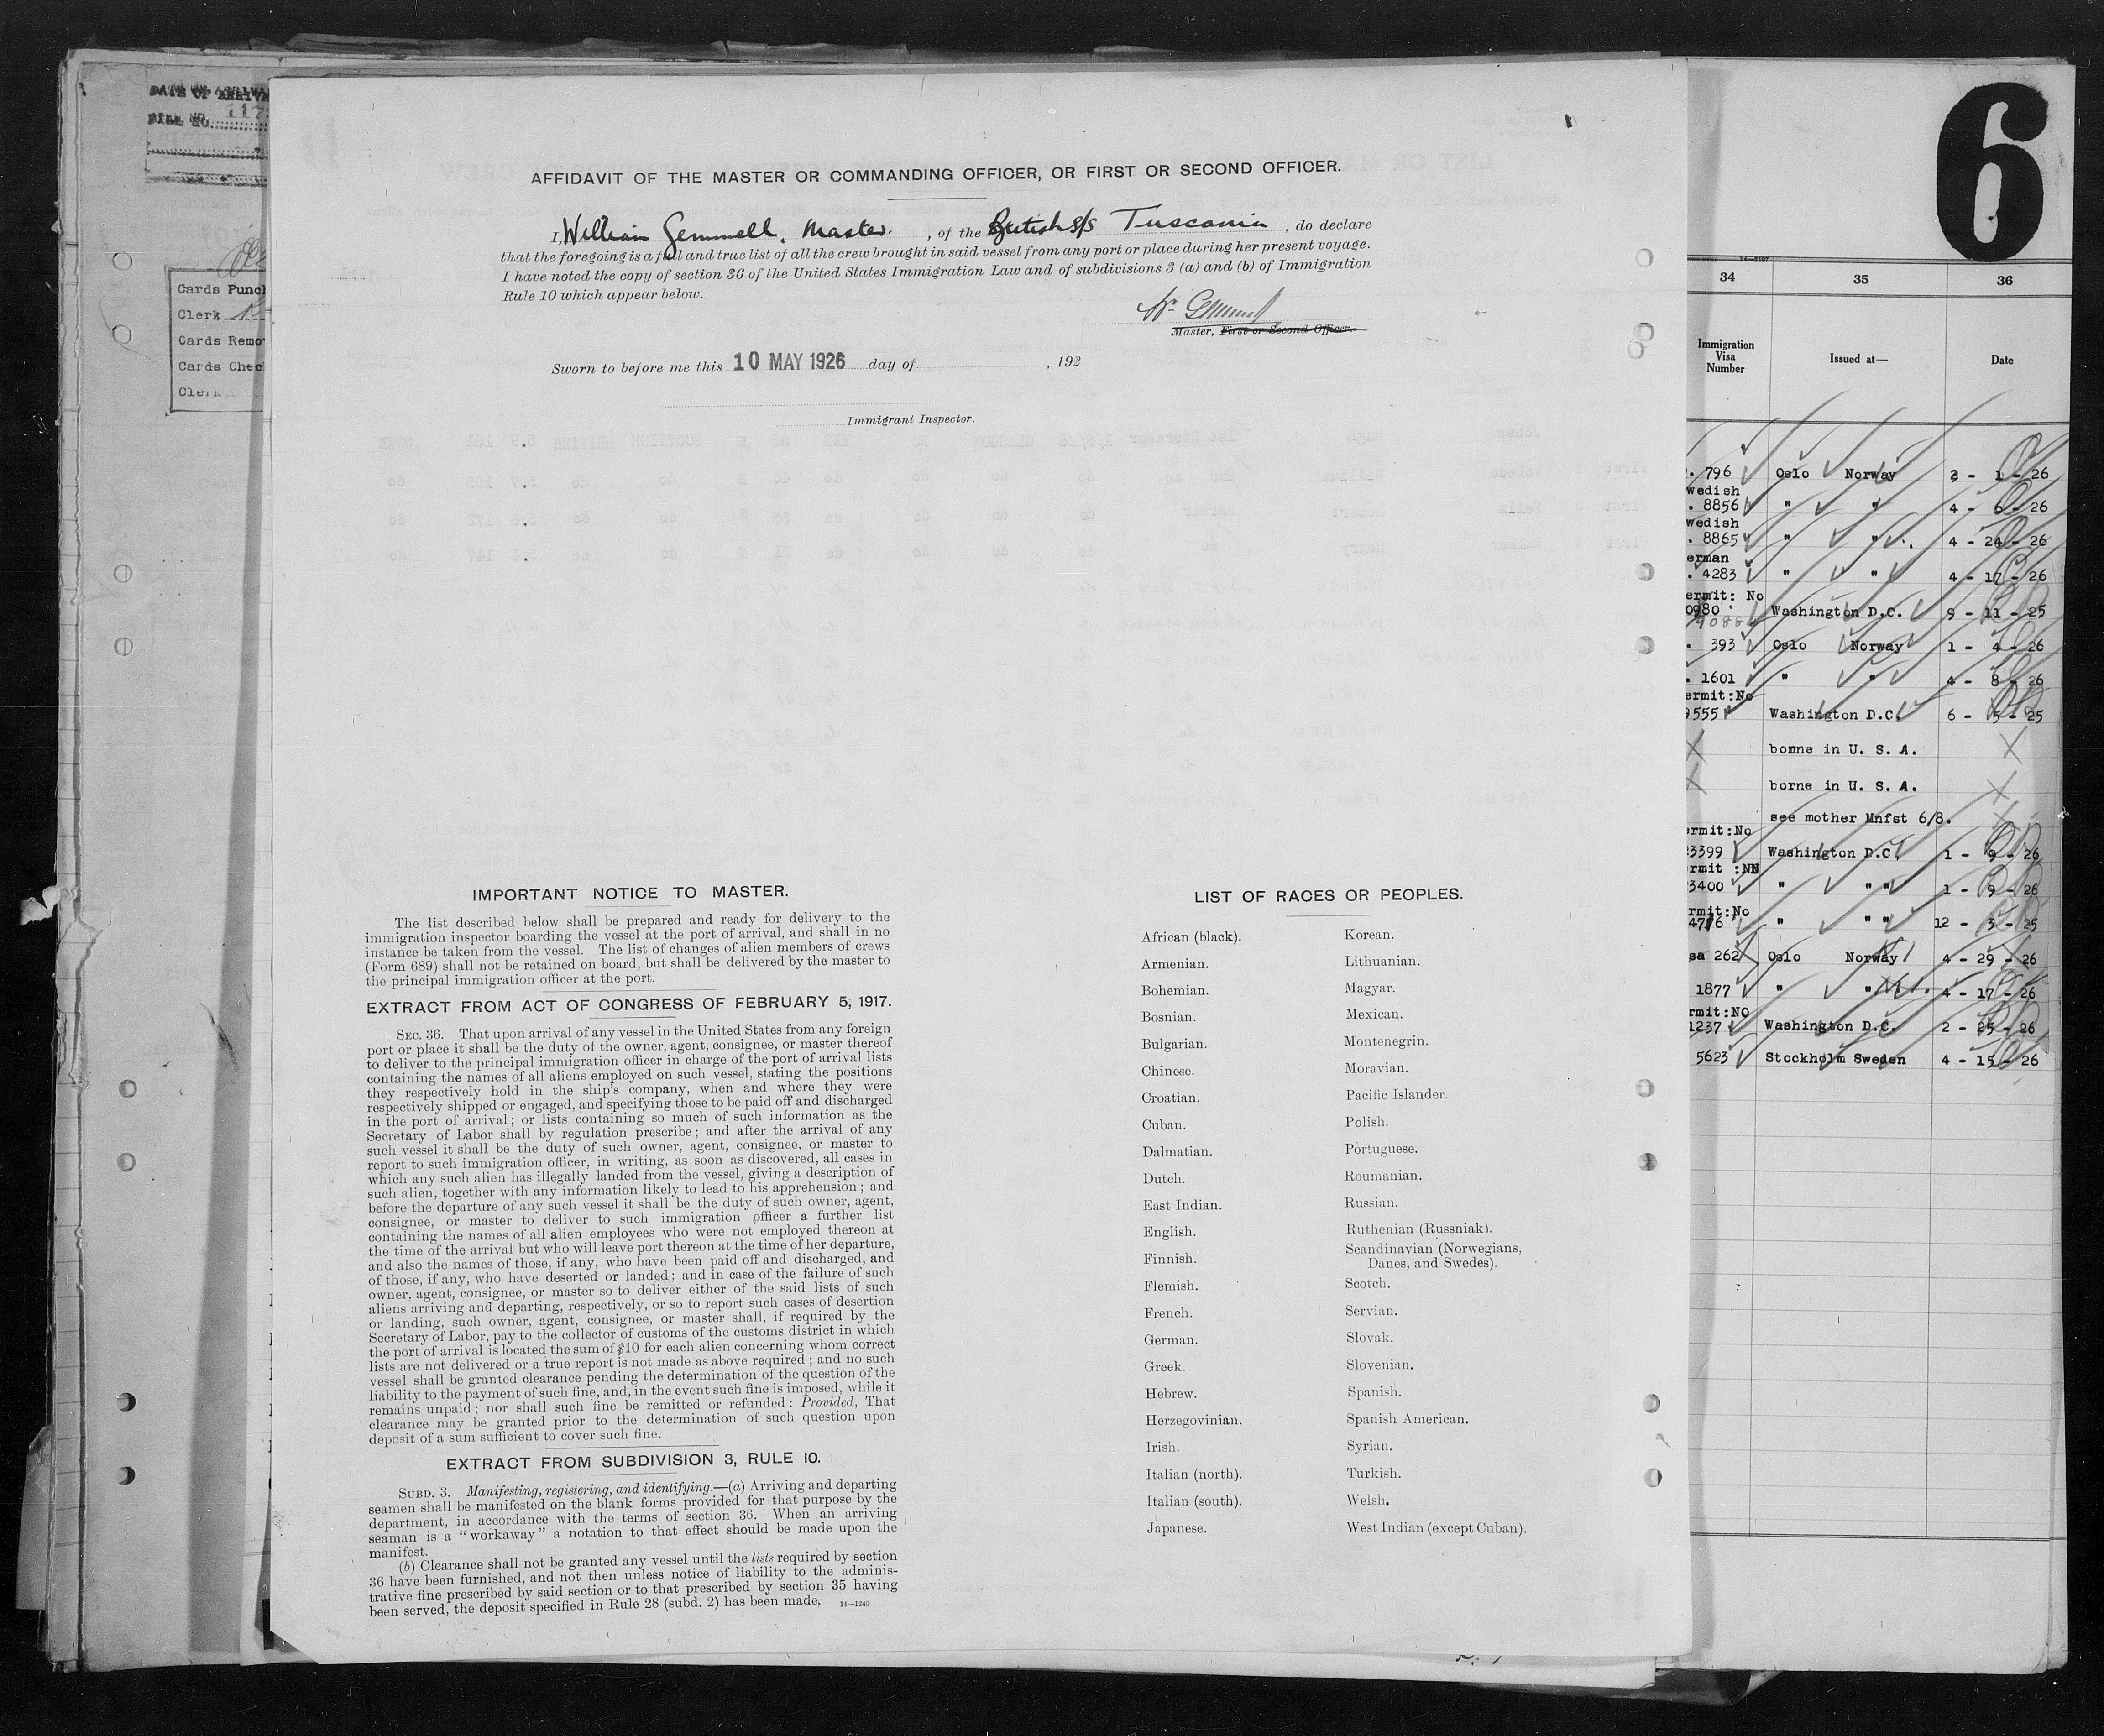 DATE OF ARRIVA
FILE NO. 117
Cards Punch
Clerk
Cards Remo
Cards Chec
Clerk
AFFIDAVIT OF THE MASTER OR COMMANDING OFFICER, OR FIRST OR SECOND OFFICER.
I, William Gemmell, Master , of the British s/s Tuscania , do declare
that the foregoing is a full and true list of all the crew brought in said vessel from any port or place during her present voyage.
I have noted the copy of section 36 of the United States Immigration Law and of subdivisions 3 (a) and (b) of Immigration
Rule 10 which appear below.
Wm Gemmell
Master, First or Second Officer.
Sworn to before me this 10 MAY 1926 day of , 192
Immigrant Inspector.
IMPORTANT NOTICE TO MASTER.
The list described below shall be prepared and ready for delivery to the
immigration inspector boarding the vessel at the port of arrival, and shall in no
instance be taken from the vessel. The list of changes of alien members of crews
(Form 689) shall not be retained on board, but shall be delivered by the master to
the principal immigration officer at the port.
EXTRACT FROM ACT OF CONGRESS OF FEBRUARY 5, 1917.
SEC. 36. That upon arrival of any vessel in the United States from any foreign
port or place it shall be the duty of the owner, agent, consignee, or master thereof
to deliver to the principal immigration officer in charge of the port of arrival lists
containing the names of all aliens employed on such vessel, stating the positions
they respectively hold in the ship's company, when and where they were
respectively shipped or engaged, and specifying those to be paid off and discharged
in the port of arrival; or lists containing so much of such information as the
Secretary of Labor shall by regulation prescribe; and after the arrival of any
such vessel it shall be the duty of such owner, agent, consignee. or master to
report to such immigration officer, in writing, as soon as discovered, all cases in
which any such alien has illegally landed from the vessel, giving a description of
such alien, together with any information likely to lead to his apprehension; and
before the departure of any such vessel it shall be the duty of such owner, agent,
consignee, or master to deliver to such immigration officer a further list
containing the names of all alien employees who were not employed thereon at
the time of the arrival but who will leave port thereon at the time of her departure,
and also the names of those, if any, who have been paid off and discharged, and
of those, if any, who have deserted or landed; and in case of the failure of such
owner, agent, consignee, or master so to deliver either of the said lists of such
aliens arriving and departing, respectively, or so to report such cases of desertion
or landing, such owner, agent, consignee, or master shall, if required by the
Secretary of Labor, pay to the collector of customs of the customs district in which
the port of arrival is located the sum of $10 for each alien concerning whom correct
lists are not delivered or a true report is not made as above required; and no such
vessel shall be granted clearance pending the determination of the question of the
liability to the payment of such fine, and, in the event such fine is imposed, while it
remains unpaid; nor shall such fine be remitted or refunded: Provided, That
clearance may be granted prior to the determination of such question upon
deposit of a sum sufficient to cover such fine.
EXTRACT FROM SUBDIVISION 3, RULE 10.
SUBD. 3. Manifesting, registering, and identifying.—(a) Arriving and departing
seamen shall be manifested on the blank forms provided for that purpose by the
department, in accordance with the terms of section 36. When an arriving
seaman is a "workaway" a notation to that effect should be made upon the
manifest.
(b) Clearance shall not be granted any vessel until the lists required by section
36 have been furnished, and not then unless notice of liability to the adminis-
trative fine prescribed by said section or to that prescribed by section 35 having
been served, the deposit specified in Rule 28 (subd. 2) has been made. 14—1240
LIST OF RACES OR PEOPLES.
African (black).
Armenian.
Bohemian.
Bosnian.
Bulgarian.
Chinese.
Croatian.
Cuban.
Dalmatian.
Dutch.
East Indian.
English.
Finnish.
Flemish.
French.
German.
Greek.
Hebrew.
Herzegovinian.
Irish.
Italian (north).
Italian (south).
Japanese.
Korean.
Lithuanian.
Magyar.
Mexican.
Montenegrin.
Moravian.
Pacific Islander.
Polish.
Portuguese.
Roumanian.
Russian.
Ruthenian (Russniak).
Scandinavian (Norwegians,
Danes, and Swedes).
Scotch.
Servian.
Slovak.
Slovenian.
Spanish.
Spanish American.
Syrian.
Turkish.
Welsh.
West Indian (except Cuban).
6
34 35 36
Immigration
Visa
Number
Issued at—
Date
. 796 Oslo Norway 3 - 1 - 26
wedish
. 8856 " " 4 - 6 - 26
wedish
. 8865 " " 4 - 24 - 26
erman
. 4283 " " 4 - 17 - 26
ermit: No
0980 Washington D.C. 9 - 11 - 25
. 393 Oslo Norway 1 - 4 - 26
. 1601 " " 4 - 8 - 26
ermit:No
9555 Washington D.C. 6 - 15 - 25
X borne in U. S. A. X
X borne in U. S. A. X
see mother Mnfst 6/8.
ermit:No
3399 Washington D.C. 1 - 9 - 26
rmit :NN
3400 " " " 1 - 9 - 26
rmit:No
4776 " " " 12 - 3 - 25
sa 262 Oslo Norway 4 - 29 - 26
1877 " " 4 - 17 - 26
rmit:NO
1237 Washington D.C. 2 - 25 - 26
5623 Stockholm Sweden 4 - 15 - 26